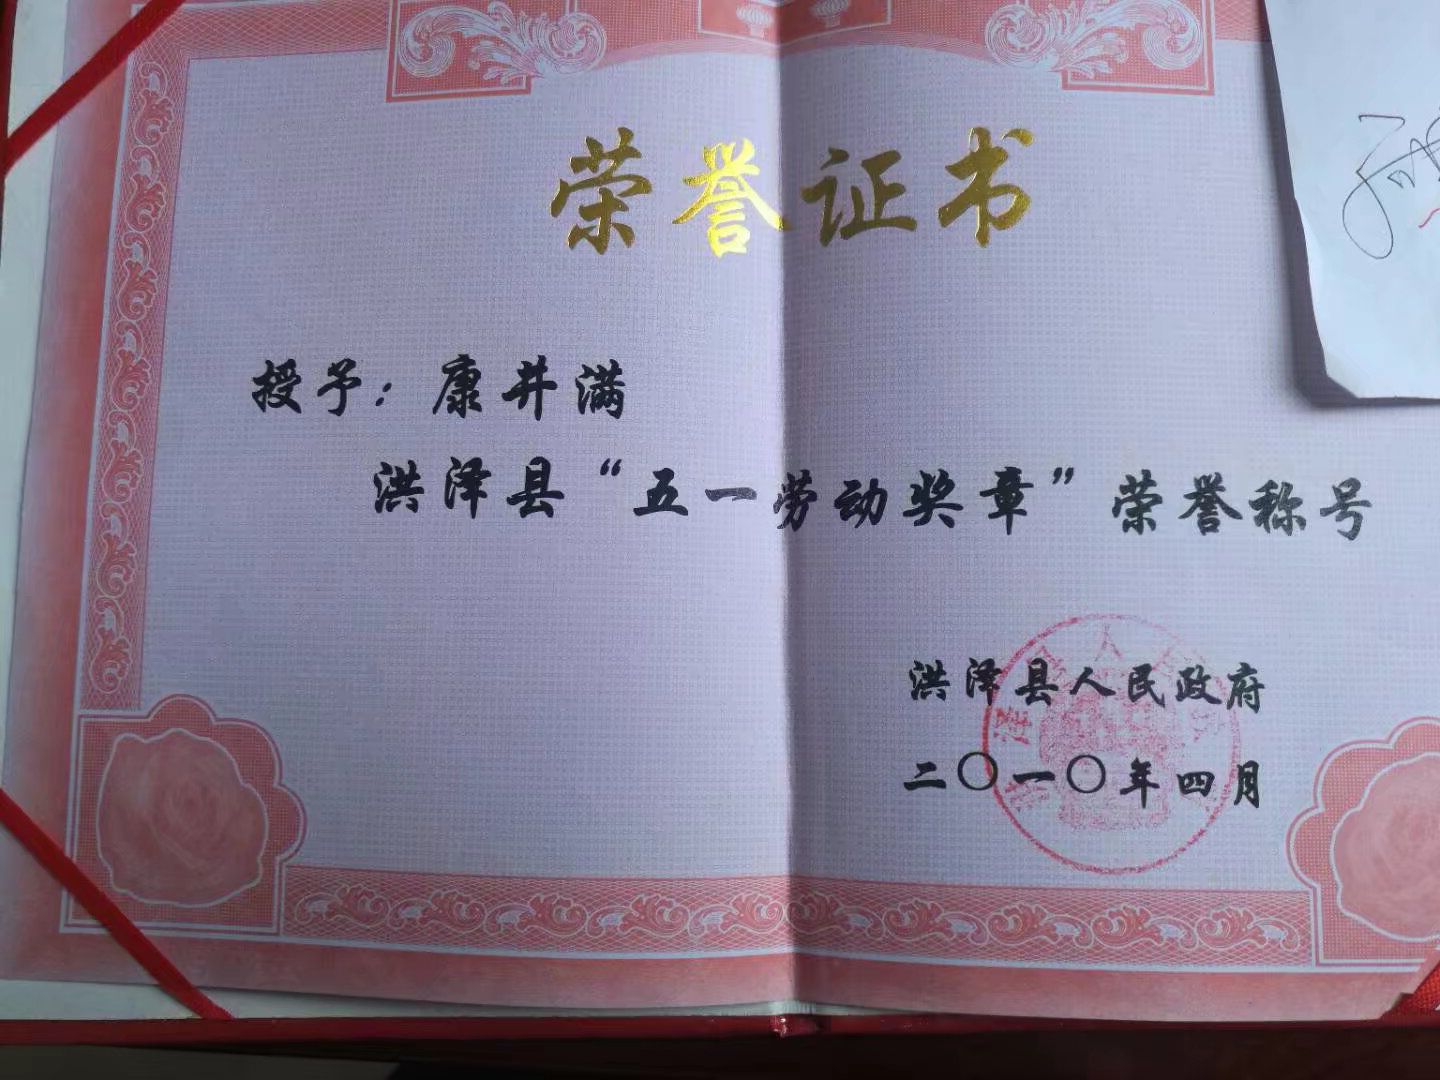 荣誉证书
授予：康井满
洪泽县“五一劳动奖章”荣誉称号
洪泽县人民政府
二〇一〇年四月